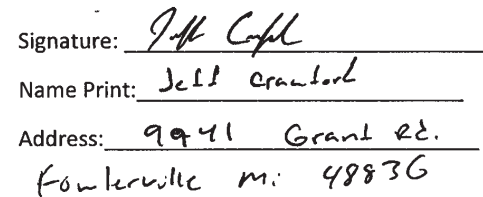 Signature: Jeff Crawford
Name Print: Jeff Crawford
Address: 9941 Grand Rd.
Fowlerville Mi 48836